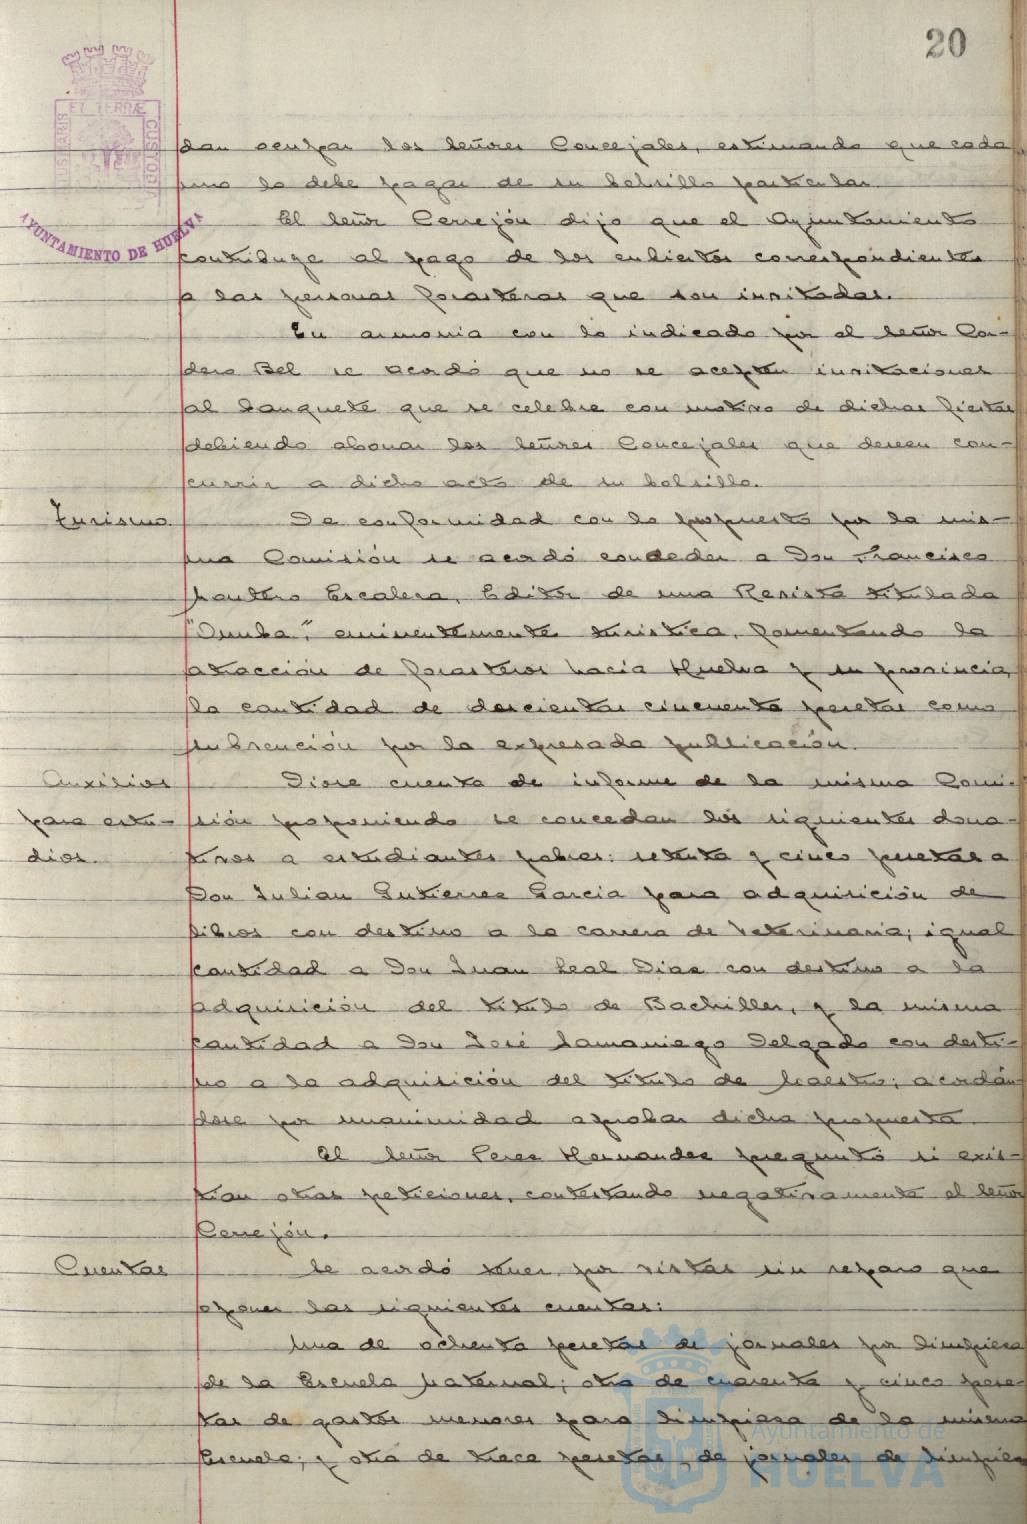 20
PORTUS MARIS ET TERRÆ CUSTODIA
AYUNTAMIENTO DE HUELVA
dan ocupar los señores Concejales, estimando que cada
uno lo debe pagar de su bolsillo particular.
El señor Cerrejón dijo que el Ayuntamiento
contribuye al pago de los cubiertos correspondientes
a las personas forasteras que son invitadas.
En armonia con lo indicado por el señor Cor-
dero Bel se acordó que no se acepten invitaciones
al banquete que se celebre con motivo de dichas fiestas
debiendo abonar los señores Concejales que deseen con-
currir a dicho acto de su bolsillo.
Turismo.
De conformidad con lo propuesto por la mis-
ma Comisión se acordó conceder a Don Francisco
Montero Escalera, Editor de una Revista titulada
"Onuba", eminentemente turistica, fomentando la
atracción de forasteros hacia Huelva y su provincia,
la cantidad de doscientas cincuenta pesetas como
subvención por la expresada publicación.
Auxilios
para estu-
dios.
Diose cuenta de informe de la misma Comi-
sión proponiendo se concedan los siguientes dona-
tivos a estudiantes pobres: setenta y cinco pesetas a
Don Julian Gutierrez Garcia para adquisición de
libros con destino a la carrera de Veterinaria; igual
cantidad a Don Juan Leal Diaz con destino a la
adquisición del titulo de Bachiller, y la misma
cantidad a Don José Samaniego Delgado con desti-
no a la adquisición del titulo de Maestro; acordán
dose por unanimidad aprobar dicha propuesta.
El señor Perez Hernandez preguntó si exis-
tian otras peticiones, contestando negativamente el señor
Cerrejón.
Cuentas
Se acordó tener por vistas sin reparo que
oponer las siguientes cuentas:
Una de ochenta pesetas de jornales por limpieza
de la Escuela Maternal; otra de cuarenta y cinco pese-
tas de gastos menores para limpieza de la misma
Escuela; y otra de trece pesetas de jornales de limpieza
Ayuntamiento de
HUELVA